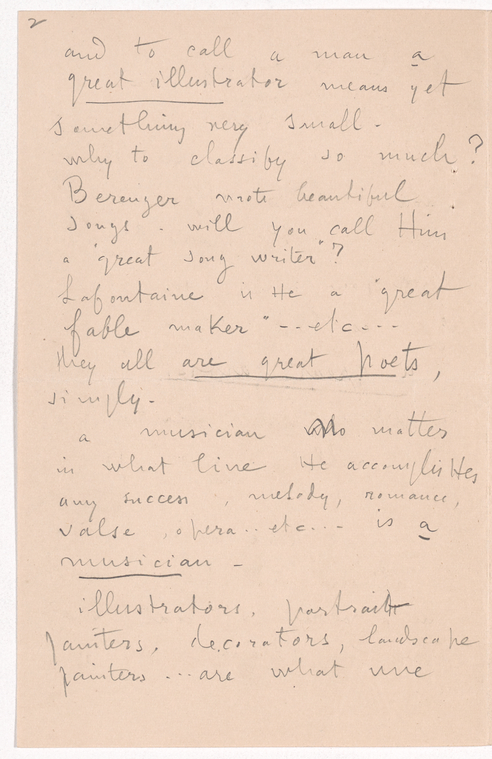 2
and to call a man a
great illustrator means yet
something very small -
why to classify so much?
Berenger wrote beautiful
songs. will you call Him
a "great song writer"?
Lafontaine is He a "great
fable maker" --- etc ---
they all are great poets,
simply -
a musician no matter
in what line He accomplisHes
any success, melody, romance,
valse, opera.. etc... - is a
musician -
illustrators, portrait
painters, decorators, landscape
painters ... are what une